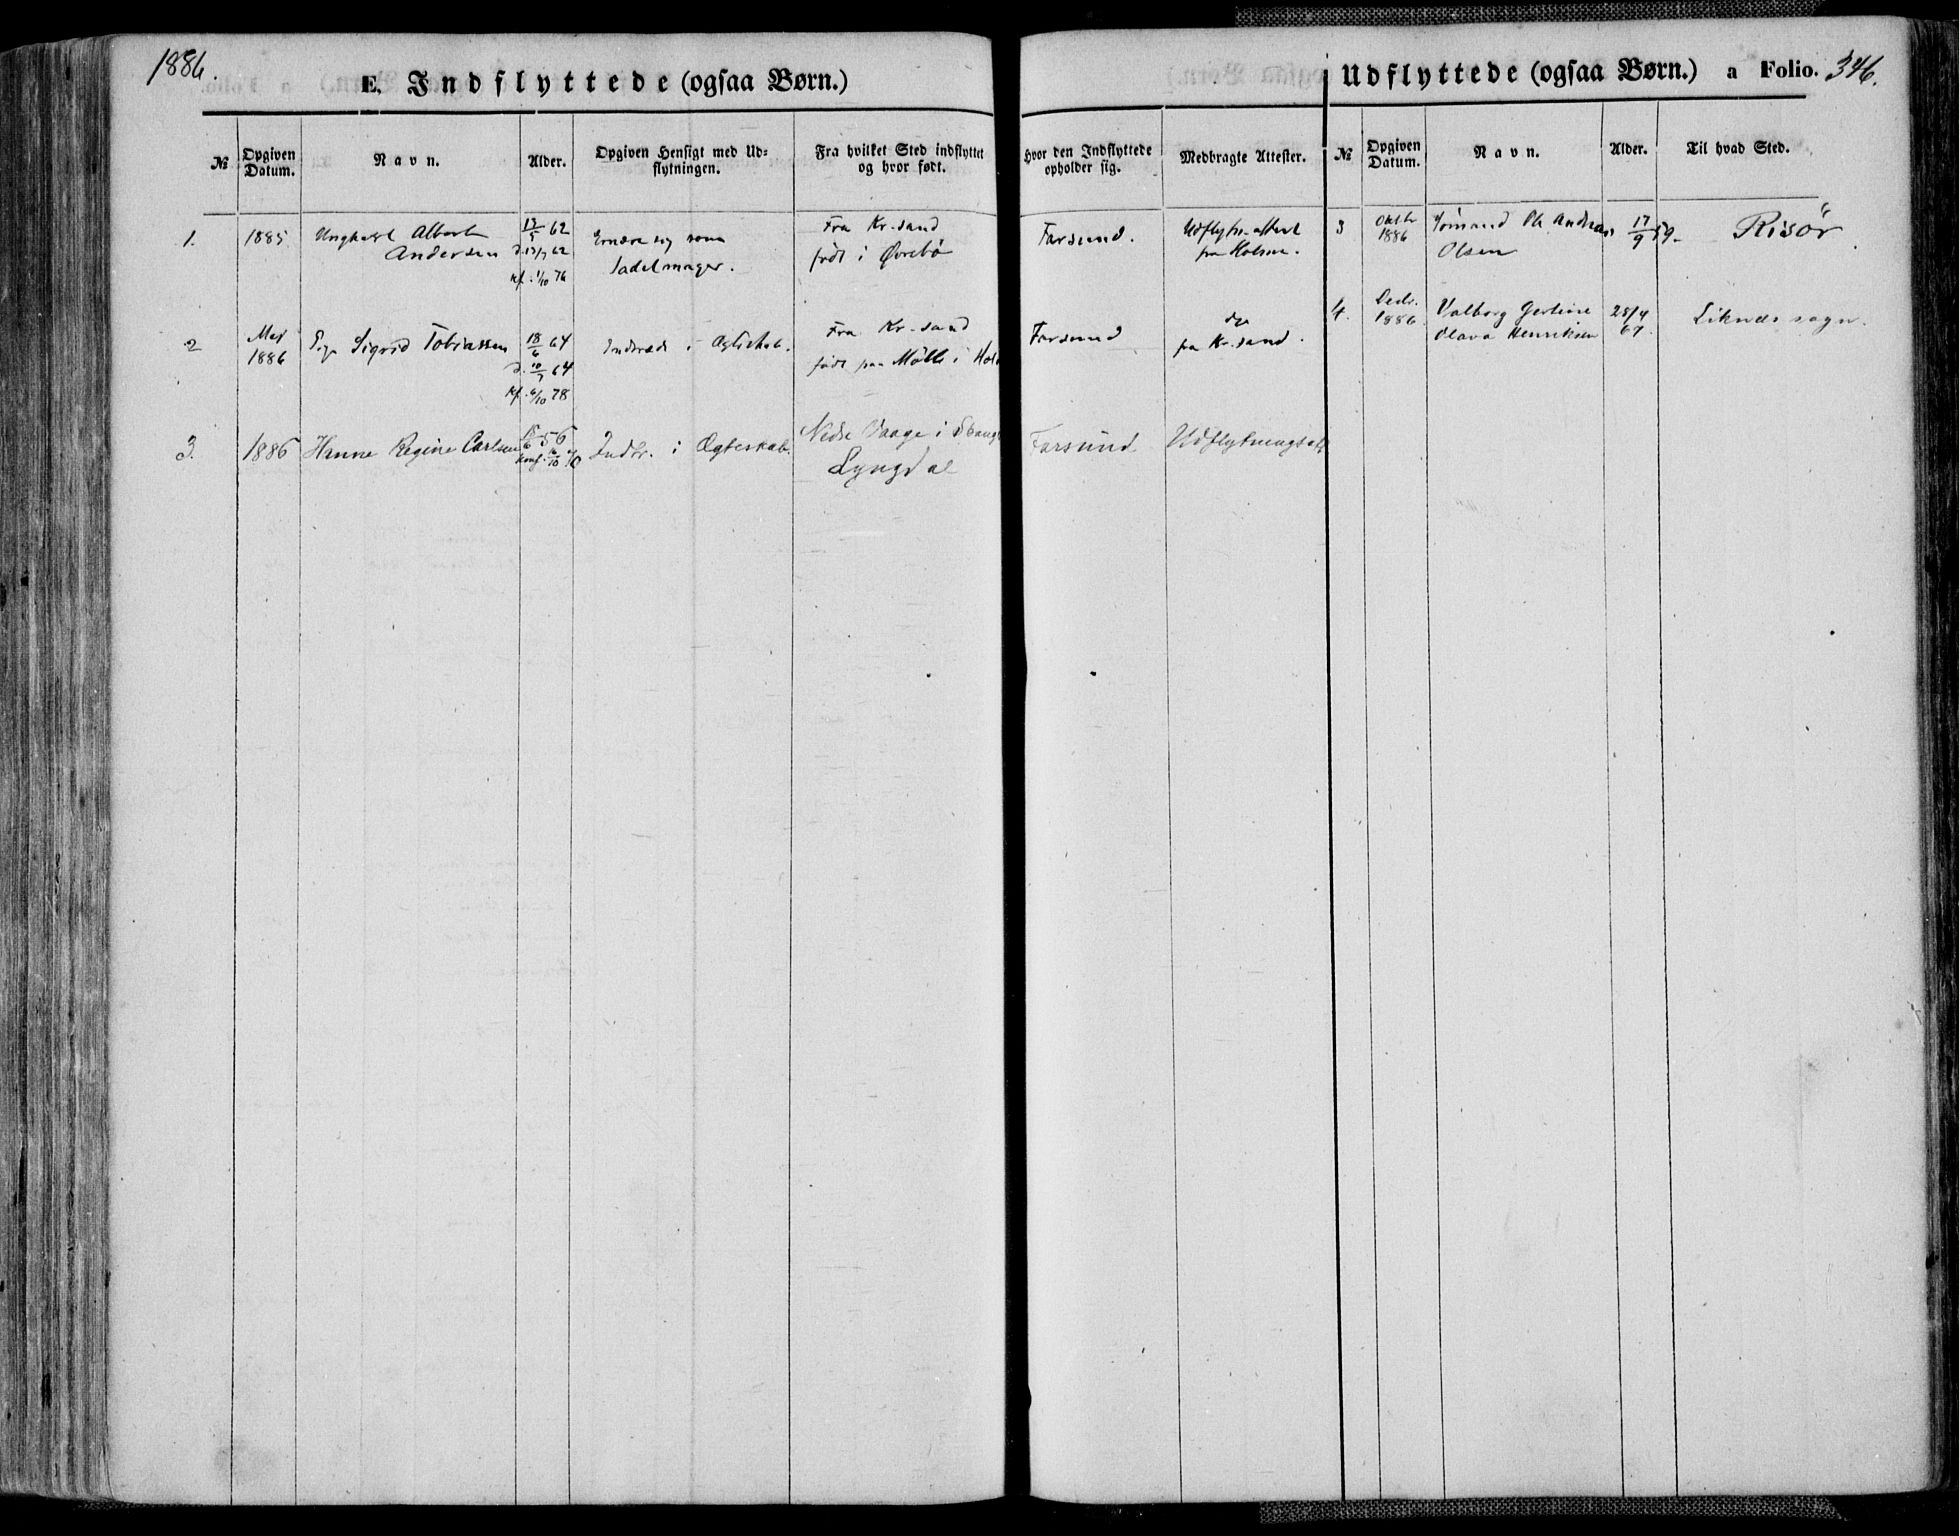 1886.
E. Indflyttede (ogsaa Børn.)
№
Opgiven Datum.
Navn.
Alder.
Opgiven Hensigt med Ud-
flytningen.
Fra hvilket Sted indflyttet
og hvor født.
1.
1885
Ungkarl Albert
Andersen
13/5 62
d. 13/7 62
kf. 1/10 76
Ernære sig som
Sadelmager.
Fra Kr.sand
født i Øvrebø
2
Maj
1886
Pige Sigrid Tobiassen
18/6 64
d. 10/7 64
kf. 6/10 78
Indtræde i Ægteskab.
Fra Kr.sand
født paa Mølle i
3.
1886
Hanne Regine Carlsen
56
Konf.
Indtr. i Ægteskab.
Nedre Vaage i
Lyngdal
Udflyttede (ogsaa Børn.) a Folio. 346.
Hvor den Indflyttede
opholder sig.
Medbragte Attester.
№
Opgiven
Datum.
Navn.
Alder.
Til hvad Sted.
Farsund.
Udflytn.attest
fra Holme.
3
Oktbr
1886
Sømand Ole Andreas
Olsen
17/9 59.
Risör
Farsund
do
fra Kr.sand.
4.
Decbr.
1886
Valborg Gertine
Olava Henriksen
28/4
67.
Liknes sogn.
Farsund
Udflytningsatt